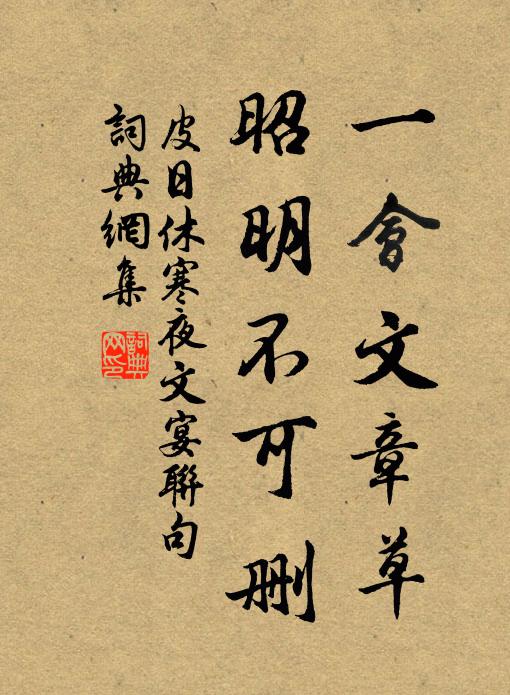 一會文章草
昭明不可删
皮日休寒夜文宴聯句
詞典網集
詞典
网印